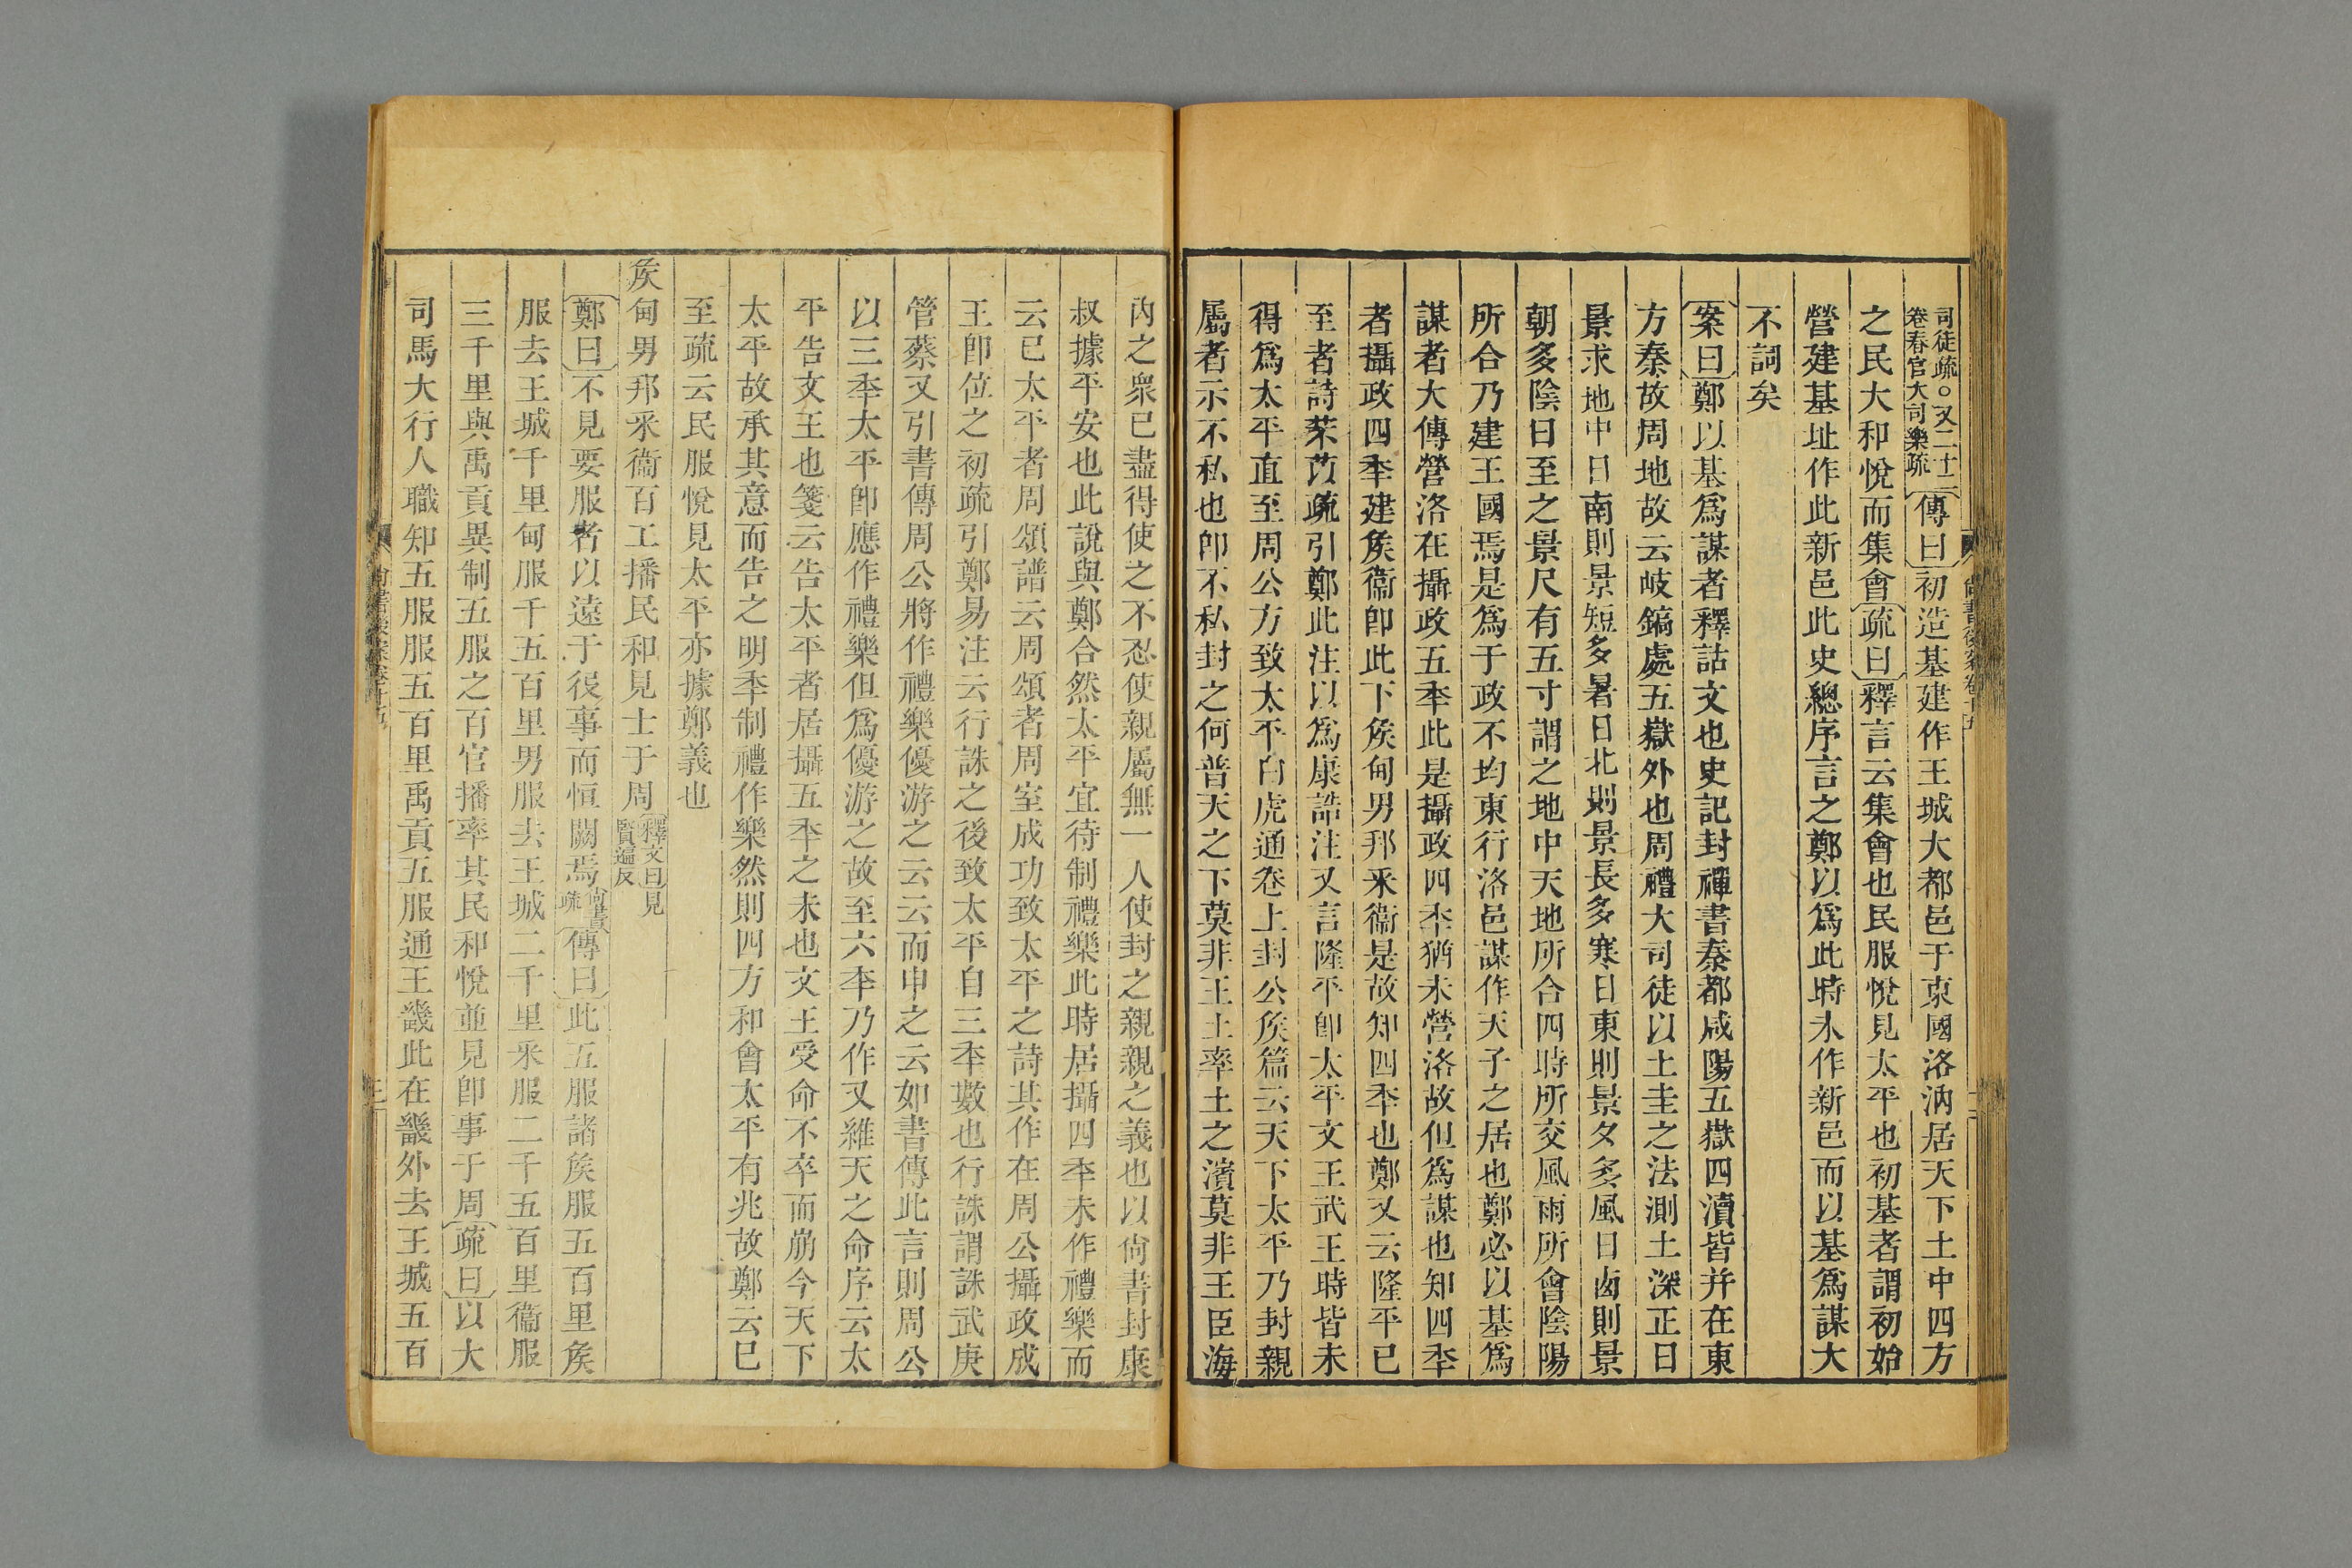 司徒疏○又二十二
卷春官大司樂疏
傳曰初造基建作王城大都邑于東國洛汭居天下土中四方
之民大和悅而集會疏曰釋言云集會也民服悅見太平也初基者謂初始
營建基址作此新邑此史總序言之鄭以爲此時未作新邑而以基爲謀大
不詞矣
案曰鄭以基爲謀者釋詁文也史記封禪書秦都咸陽五嶽四瀆皆并在東
方秦故周地故云岐鎬處五嶽外也周禮大司徒以土圭之法測土深正日
景求地中日南則景短多暑日北則景長多寒日東則景夕多風日㢴則景
朝多陰日至之景尺有五寸謂之地中天地所合四時所交風雨所會陰陽
所合乃建王國焉是爲于政不均東行洛邑謀作天子之居也鄭必以基爲
謀者大傳營洛在攝政五秊此是攝政四秊猶未營洛故但爲謀也知四秊
者攝政四秊建矦衞卽此下矦甸男邦釆衞是故知四秊也鄭又云隆平已
至者詩芣苡疏引鄭此注以爲康誥注又言隆平卽太平文王武王時皆未
得爲太平直至周公方致太平白虎通卷上封公矦篇云天下太平乃封親
屬者示不私也卽不私封之何普天之下莫非王土率土之濱莫非王臣海
內之衆已盡得使之不忍使親屬無一人使封之親親之義也以尙書封康
叔據平安也此說與鄭合然太平宜待制禮樂此時居攝四秊未作禮樂而
云已太平者周頌譜云周頌者周室成功致太平之詩其作在周公攝政成
王卽位之初疏引鄭易注云行誅之後致太平自三秊數也行誅謂誅武庚
管蔡又引書傳周公將作禮樂優游之云云而申之云如書傳此言則周公
以三秊太平卽應作禮樂但爲優游之故至六秊乃作又維天之命序云太
平告文王也箋云告太平者居攝五秊之末也文王受命不卒而崩今天下
太平故承其意而告之明秊制禮作樂然則四方和會太平有兆故鄭云已
至疏云民服悅見太平亦據鄭義也
矦甸男邦釆衞百工播民和見士于周
釋文曰見
賢遍反
鄭曰不見要服者以遠于役事而恒闕焉
尙書
疏
傳曰此五服諸矦服五百里矦
服去王城千里甸服千五百里男服去王城二千里釆服二千五百里衞服
三千里與禹貢異制五服之百官播率其民和悅並見卽事于周疏曰以大
司馬大行人職知五服服五百里禹貢五服通王畿此在畿外去王城五百